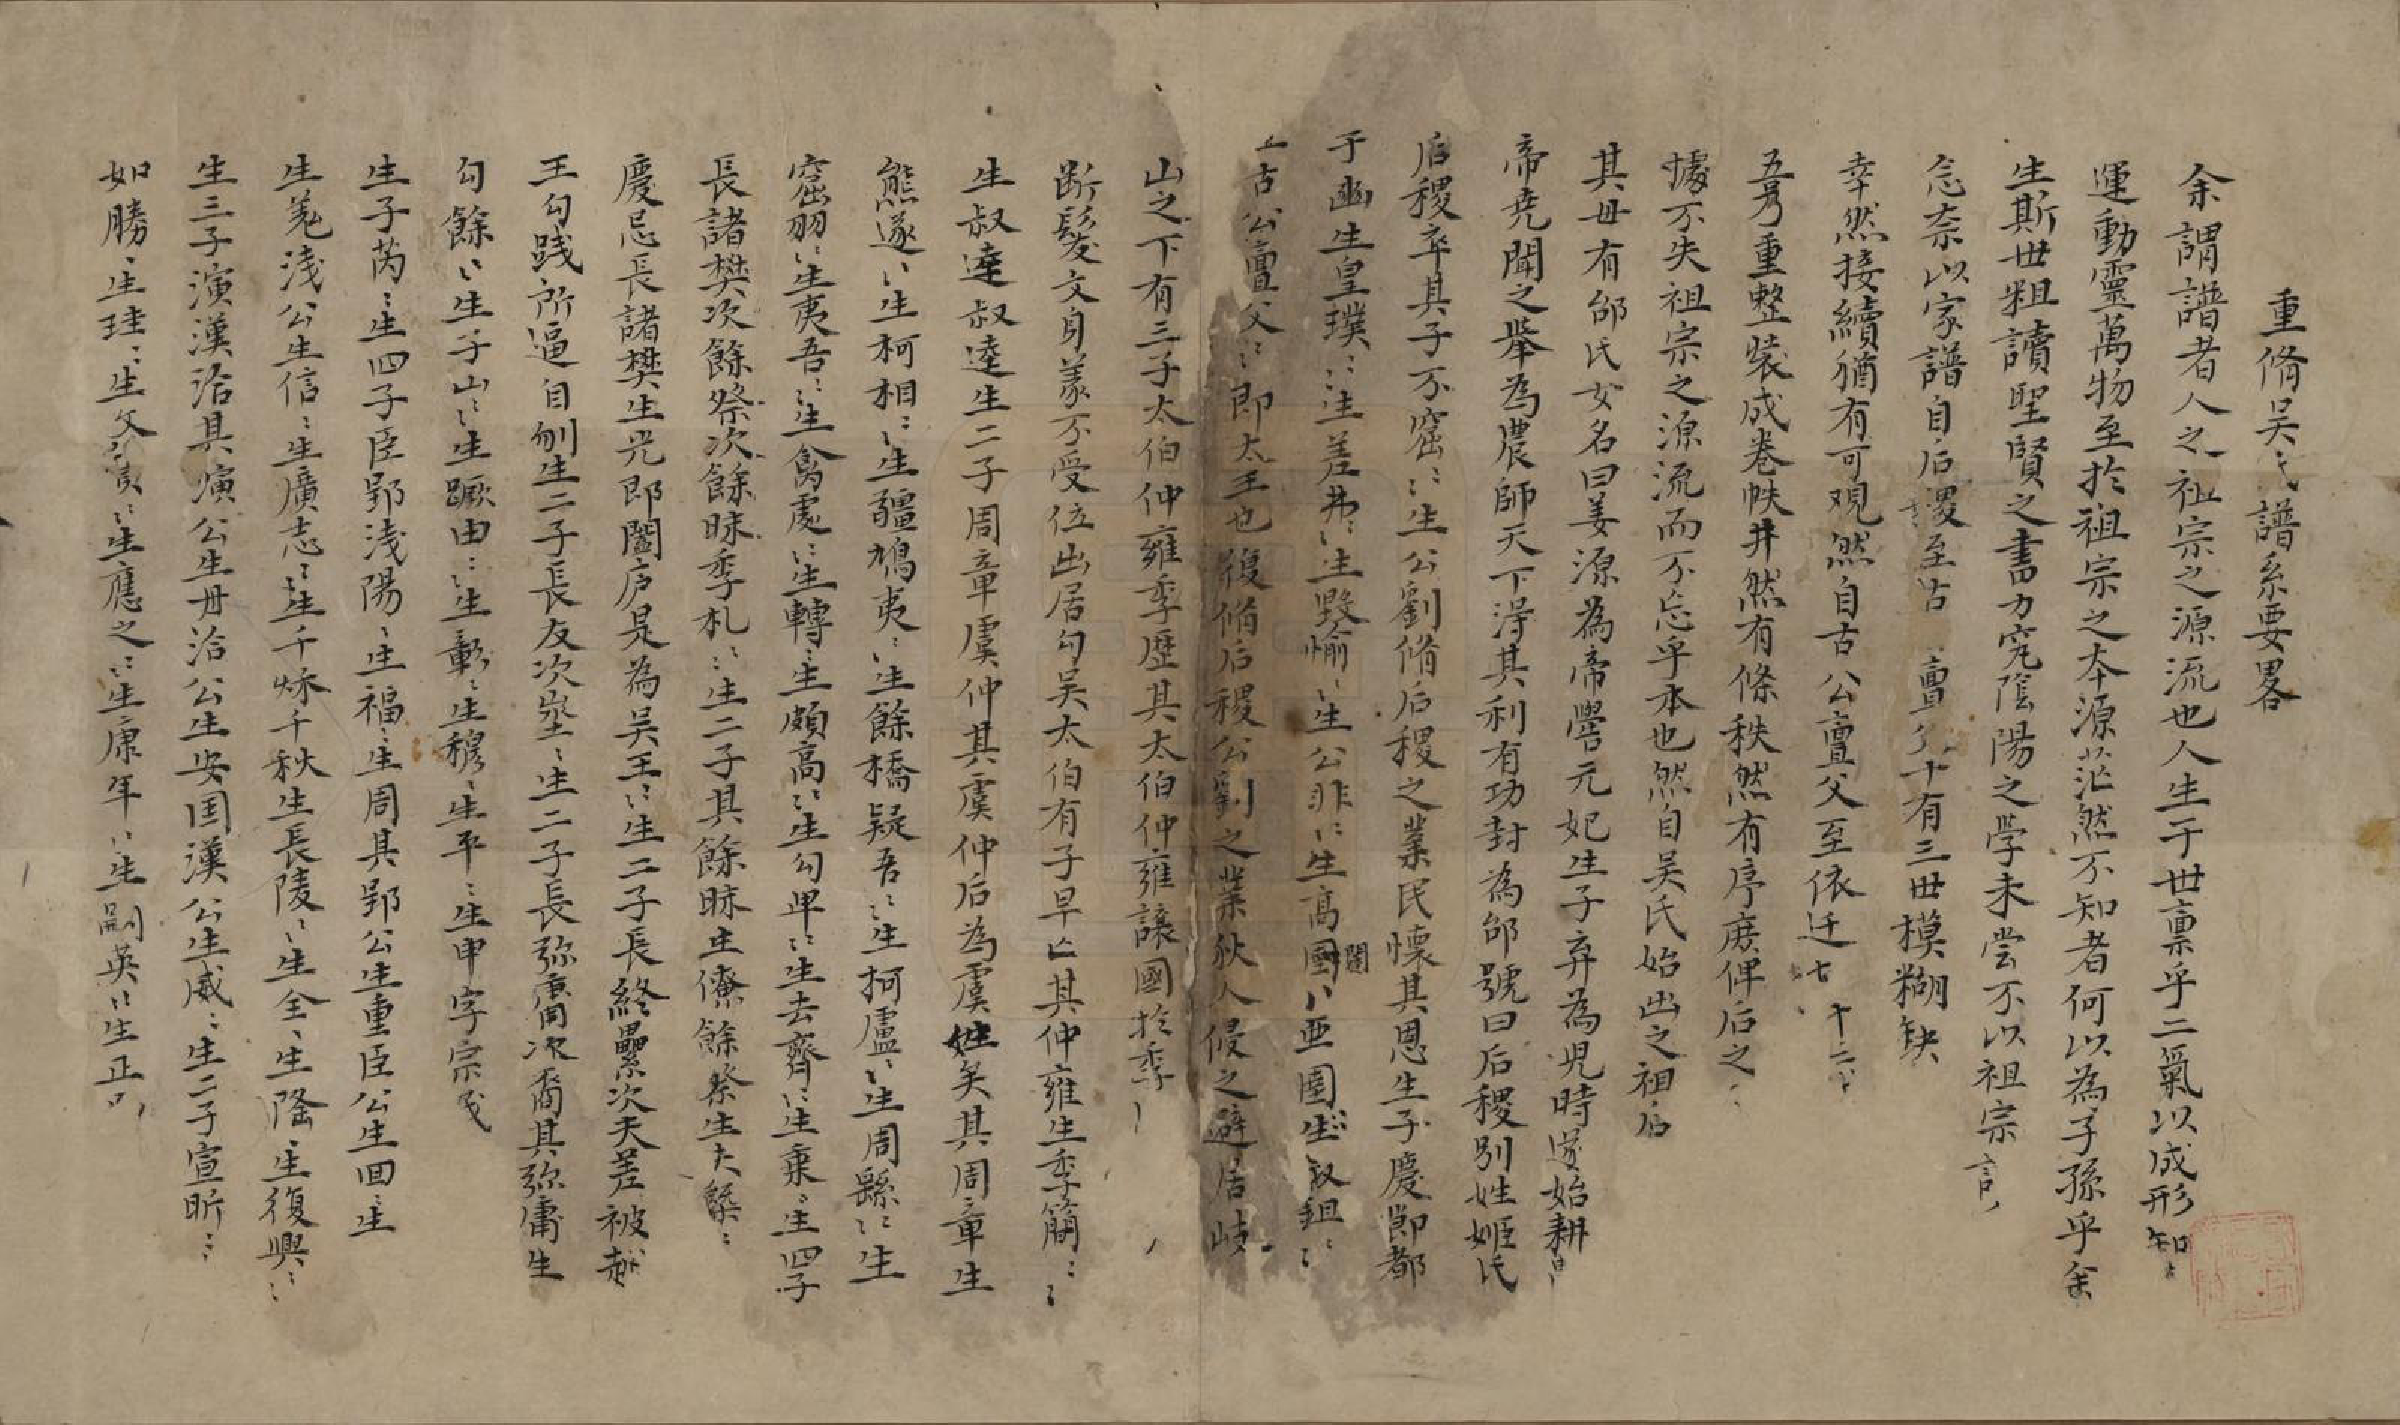 重脩吳氏譜系要畧
余謂譜者人之祖宗之源流也人生于世禀乎二氣以成形知
運動靈萬物至於祖宗之本源茫然不知者何以為子孫乎余
生斯世粗讀聖賢之書力究陰陽之学未嘗不以祖宗言
念奈以家譜自后稷至古亶父十有三世模糊缺
幸然接續猶有可观然自古公亶父至依迁七十二
五乃重整装成卷帙井然有條秩然有序庶俾后之
據不失祖宗之源流而不忘乎本也然自吴氏始出之祖后
其母有邰氏女名曰姜源為帝嚳元妃生子弃為児時遂始耕
帝堯聞之举為農師天下淂其利有功封為邰號曰后稷别姓姬氏
后稷卒其子不窋〻生公劉脩后稷之業民懷其恩生子慶節都
于豳生皇璞〻生差弗〻生毀愉〻生公非〻生高國〻亜圉生叔組〻
古公亶父〻即太王也復脩后稷公劉之業狄人侵之避居岐
山之下有三子太伯仲雍季歷其太伯仲雍讓國於季
断髮文身羕不受位出居勾吴太伯有子早亡其仲雍生季簡〻
生叔達叔逵生二子周章虞仲其虞仲后為虞姓矣其周章生
熊遂〻生柯相〻生疆鳩夷〻生餘橋疑吾〻生柯盧〻生周繇〻生
窋羽〻生夷吾〻生禽處〻生轉〻生頗高〻生勾卑〻生去齊〻生乗〻生四子
長諸樊次餘祭次餘昧季札〻生二子其餘昧生僚餘祭生夫槩〻
慶忌長諸樊生光即闔庐是為吴王〻生二子長終纍次夫差被越
王勾践所逼自刎生二子長友次㟧〻生二子長弥庸次裔其弥庸生
勾餘〻生子山〻生蹶由〻生彰〻生穆〻生平〻生申字宗
生子芮〻生四子臣郢浅陽〻生福〻生周其郢公生重臣公生回〻生
生羌浅公生信〻生廣志〻生千秌千秋生長陵〻生全〻生隆〻生復興〻
生三子演漢治其演公生毋治公生安国漢公生威〻生二子宣昕〻
如勝〻生珪〻生父賁〻生應之〻生康年〻生嗣英〻生正